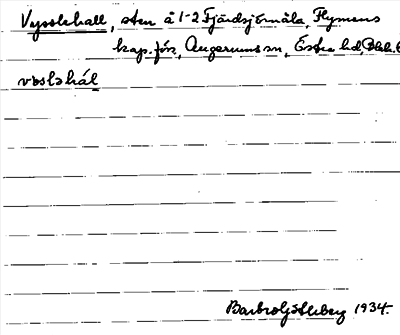 Vysslehall, sten å 1-2 Fjärdsjömåla, Flymens
kap.förs, Augerums sn, Östra hd, Blek.
vɒslehál
Barbro Söderberg 1934.